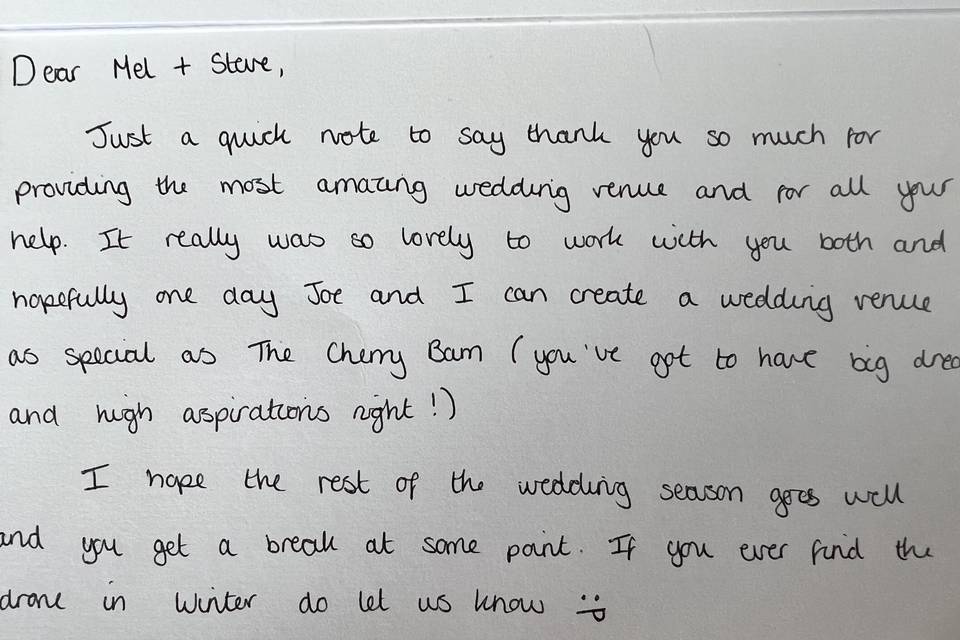 Dear Mel + Steve,
Just a quick note to say thank you so much for
providing the most amazing wedding venue and for all your
help. It really was so lovely to work with you both and
hopefully one day Joe and I can create a wedding venue
as special as The Cherry Barn (you've got to have big drea
and high aspirations right!)
I hope the rest of the wedding season goes well
and you get a break at some point. If you ever find the
drone in Winter do let us know :P